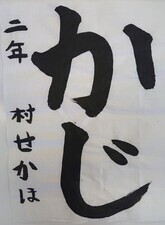 かじ
二年 村せかほ